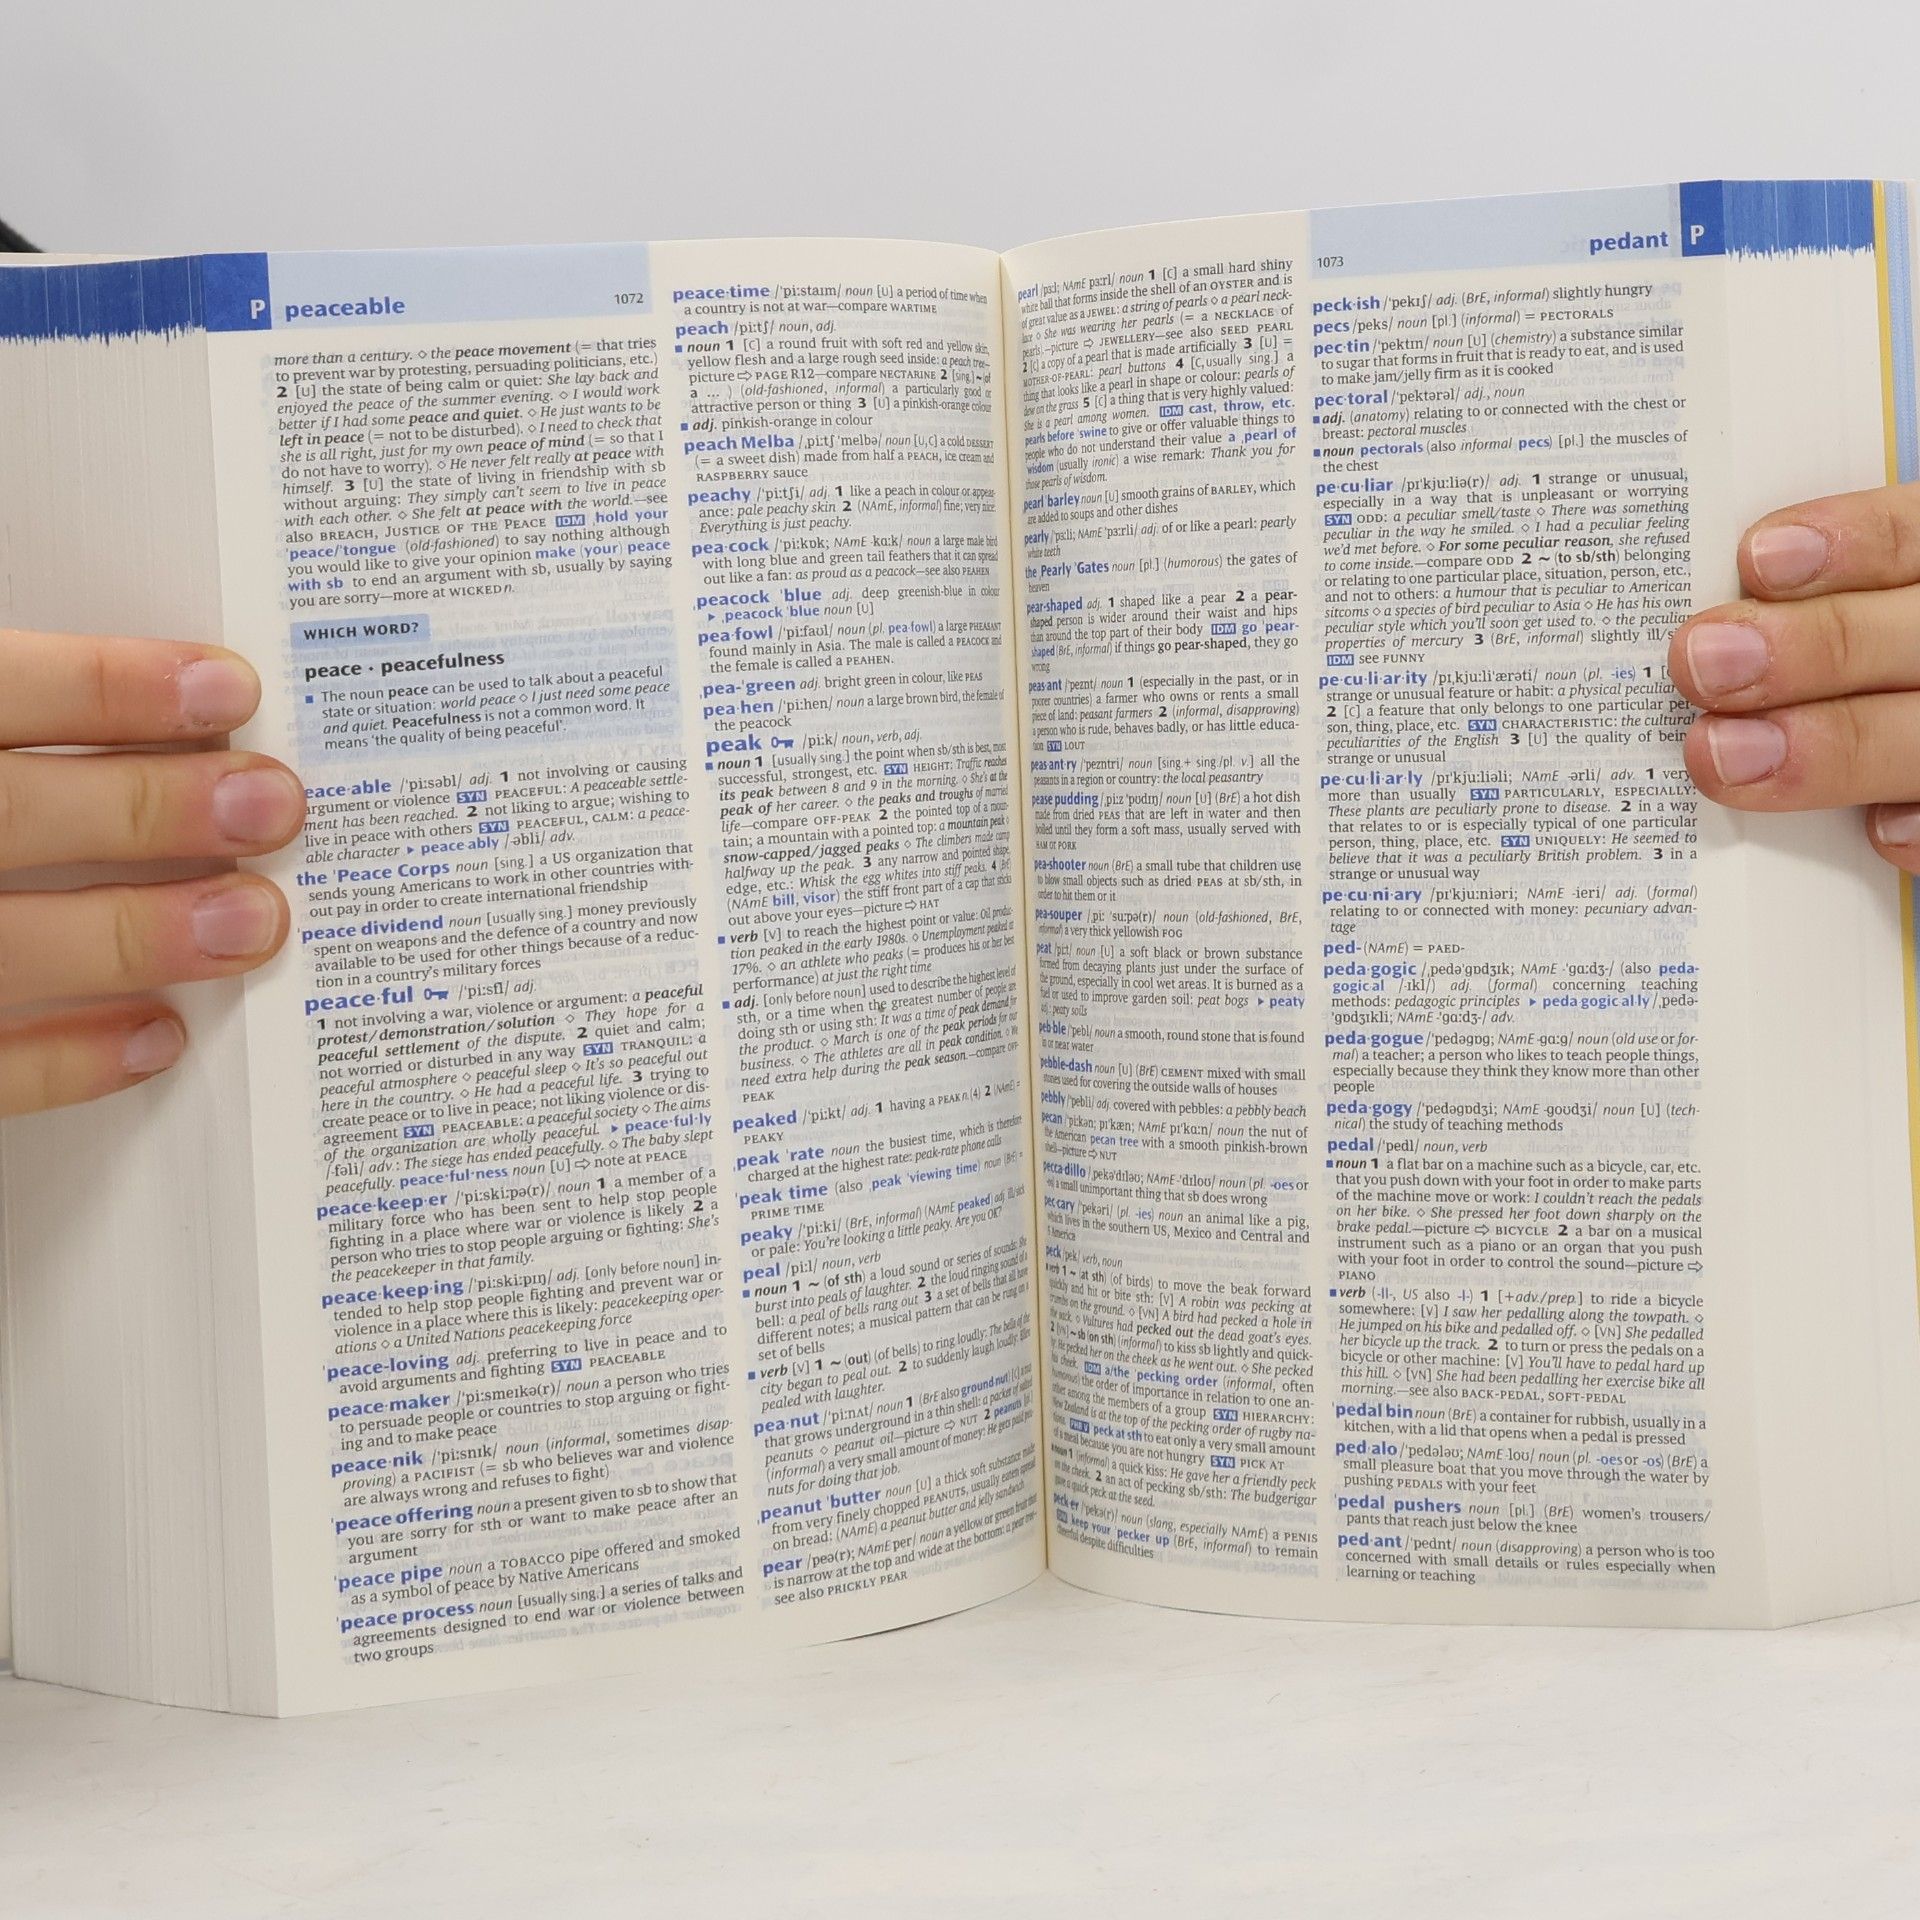 P peaceable 1072
more than a century. ◇ the peace movement (= that tries
to prevent war by protesting, persuading politicians, etc.)
2 [U] the state of being calm or quiet: She lay back and
enjoyed the peace of the summer evening. ◇ I would work
better if I had some peace and quiet. ◇ He just wants to be
left in peace (= not to be disturbed). ◇ I need to check that
she is all right, just for my own peace of mind (= so that I
do not have to worry). ◇ He never felt really at peace with
himself. 3 [U] the state of living in friendship with sb
without arguing: They simply can't seem to live in peace
with each other. ◇ She felt at peace with the world.—see
also BREACH, JUSTICE OF THE PEACE IDM ˌhold your
ˈpeace/ˈtongue (old-fashioned) to say nothing although
you would like to give your opinion make (your) peace
with sb to end an argument with sb, usually by saying
you are sorry—more at WICKED n.
WHICH WORD?
peace · peacefulness
■ The noun peace can be used to talk about a peaceful
state or situation: world peace ◇ I just need some peace
and quiet. Peacefulness is not a common word. It
means 'the quality of being peaceful'.
eace·able /ˈpiːsəbl/ adj. 1 not involving or causing
argument or violence SYN PEACEFUL: A peaceable settle-
ment has been reached. 2 not liking to argue; wishing to
live in peace with others SYN PEACEFUL, CALM: a peace-
able character ▸ peace·ably /-əbli/ adv.
the ˈPeace Corps noun [sing.] a US organization that
sends young Americans to work in other countries with-
out pay in order to create international friendship
ˈpeace dividend noun [usually sing.] money previously
spent on weapons and the defence of a country and now
available to be used for other things because of a reduc-
tion in a country's military forces
peace·ful /ˈpiːsfl/ adj.
1 not involving a war, violence or argument: a peaceful
protest/demonstration/solution ◇ They hope for a
peaceful settlement of the dispute. 2 quiet and calm;
not worried or disturbed in any way SYN TRANQUIL: a
peaceful atmosphere ◇ peaceful sleep ◇ It's so peaceful out
here in the country. ◇ He had a peaceful life. 3 trying to
create peace or to live in peace; not liking violence or dis-
agreement SYN PEACEABLE: a peaceful society ◇ The aims
of the organization are wholly peaceful. ▸ peace·ful·ly
/-fəli/ adv.: The siege has ended peacefully. ◇ The baby slept
peacefully. peace·ful·ness noun [U] ⇨ note at PEACE
peace·keep·er /ˈpiːskiːpə(r)/ noun 1 a member of a
military force who has been sent to help stop people
fighting in a place where war or violence is likely 2 a
person who tries to stop people arguing or fighting: She's
the peacekeeper in that family.
peace·keep·ing /ˈpiːskiːpɪŋ/ adj. [only before noun] in-
tended to help stop people fighting and prevent war or
violence in a place where this is likely: peacekeeping oper-
ations ◇ a United Nations peacekeeping force
ˈpeace-loving adj. preferring to live in peace and to
avoid arguments and fighting SYN PEACEABLE
peace·maker /ˈpiːsmeɪkə(r)/ noun a person who tries
to persuade people or countries to stop arguing or fight-
ing and to make peace
peace·nik /ˈpiːsnɪk/ noun (informal, sometimes disap-
proving) a PACIFIST (= sb who believes war and violence
are always wrong and refuses to fight)
ˈpeace offering noun a present given to sb to show that
you are sorry for sth or want to make peace after an
argument
ˈpeace pipe noun a TOBACCO pipe offered and smoked
as a symbol of peace by Native Americans
ˈpeace process noun [usually sing.] a series of talks and
agreements designed to end war or violence between
two groups
peace·time /ˈpiːstaɪm/ noun [U] a period of time when
a country is not at war—compare WARTIME
peach /piːtʃ/ noun, adj.
■ noun 1 [C] a round fruit with soft red and yellow skin,
yellow flesh and a large rough seed inside: a peach tree—
picture ⇨ PAGE R12—compare NECTARINE 2 [sing.] ~ (of
a ... ) (old-fashioned, informal) a particularly good or
attractive person or thing 3 [U] a pinkish-orange colour
■ adj. pinkish-orange in colour
peach Melba /ˌpiːtʃ ˈmelbə/ noun [U,C] a cold DESSERT
(= a sweet dish) made from half a PEACH, ice cream and
RASPBERRY sauce
peachy /ˈpiːtʃi/ adj. 1 like a peach in colour or appear-
ance: pale peachy skin 2 (NAmE, informal) fine; very nice:
Everything is just peachy.
pea·cock /ˈpiːkɒk; NAmE -kɑːk/ noun a large male bird
with long blue and green tail feathers that it can spread
out like a fan: as proud as a peacock—see also PEAHEN
ˌpeacock ˈblue adj. deep greenish-blue in colour
▸ ˌpeacock ˈblue noun [U]
pea·fowl /ˈpiːfaʊl/ noun (pl. pea·fowl) a large PHEASANT
found mainly in Asia. The male is called a PEACOCK and
the female is called a PEAHEN.
ˌpea-ˈgreen adj. bright green in colour, like PEAS
pea·hen /ˈpiːhen/ noun a large brown bird, the female of
the peacock
peak /piːk/ noun, verb, adj.
■ noun 1 [usually sing.] the point when sb/sth is best, most
successful, strongest, etc. SYN HEIGHT: Traffic reaches
its peak between 8 and 9 in the morning. ◇ She's at the
peak of her career. ◇ the peaks and troughs of married
life—compare OFF-PEAK 2 the pointed top of a moun-
tain; a mountain with a pointed top: a mountain peak ◇
snow-capped/jagged peaks ◇ The climbers made camp
halfway up the peak. 3 any narrow and pointed shape,
edge, etc.: Whisk the egg whites into stiff peaks. 4 (BrE)
(NAmE bill, visor) the stiff front part of a cap that sticks
out above your eyes—picture ⇨ HAT
■ verb [V] to reach the highest point or value: Oil produc-
tion peaked in the early 1980s. ◇ Unemployment peaked at
17%. ◇ an athlete who peaks (= produces his or her best
performance) at just the right time
■ adj. [only before noun] used to describe the highest level of
sth, or a time when the greatest number of people are
doing sth or using sth: It was a time of peak demand for
the product. ◇ March is one of the peak periods for our
business. ◇ The athletes are all in peak condition. ◇ We
need extra help during the peak season.—compare OFF-
PEAK
peaked /ˈpiːkt/ adj. 1 having a PEAK n. (4) 2 (NAmE) =
PEAKY
ˈpeak ˈrate noun the busiest time, which is therefore
charged at the highest rate: peak-rate phone calls
ˈpeak time (also ˌpeak ˈviewing time) noun (BrE) =
PRIME TIME
peaky /ˈpiːki/ (BrE, informal) (NAmE peaked) adj. ill/sick
or pale: You're looking a little peaky. Are you OK?
peal /piːl/ noun, verb
■ noun 1 ~ (of sth) a loud sound or series of sounds: She
burst into peals of laughter. 2 the loud ringing sound of a
bell: a peal of bells rang out 3 a set of bells that all have
different notes; a musical pattern that can be rung on a
set of bells
■ verb [V] 1 ~ (out) (of bells) to ring loudly: The bells of the
city began to peal out. 2 to suddenly laugh loudly: Ellen
pealed with laughter.
pea·nut /ˈpiːnʌt/ noun 1 (BrE also ground·nut) [C] a nut
that grows underground in a thin shell: a packet of salted
peanuts ◇ peanut oil—picture ⇨ NUT 2 peanuts [pl.]
(informal) a very small amount of money: He gets paid pea-
nuts for doing that job.
ˌpeanut ˈbutter noun [U] a thick soft substance made
from very finely chopped PEANUTS, usually eaten spread
on bread: (NAmE) a peanut butter and jelly sandwich
pear /peə(r); NAmE per/ noun a yellow or green fruit that
is narrow at the top and wide at the bottom: a pear tree—
see also PRICKLY PEAR
1073 pedant P
pearl /pɜːl; NAmE pɜːrl/ noun 1 [C] a small hard shiny
white ball that forms inside the shell of an OYSTER and is
of great value as a JEWEL: a string of pearls ◇ a pearl neck-
lace ◇ She was wearing her pearls (= a NECKLACE of
pearls).—picture ⇨ JEWELLERY—see also SEED PEARL
2 [C] a copy of a pearl that is made artificially 3 [U] =
MOTHER-OF-PEARL: pearl buttons 4 [C, usually sing.] a
thing that looks like a pearl in shape or colour: pearls of
dew on the grass 5 [C] a thing that is very highly valued:
She is a pearl among women. IDM cast, throw, etc.
pearls before ˈswine to give or offer valuable things to
people who do not understand their value a ˌpearl of
wisdom (usually ironic) a wise remark: Thank you for
those pearls of wisdom.
ˌpearl ˈbarley noun [U] smooth grains of BARLEY, which
are added to soups and other dishes
pearly /ˈpɜːli; NAmE ˈpɜːrli/ adj. of or like a pearl: pearly
white teeth
the Pearly ˈGates noun [pl.] (humorous) the gates of
heaven
pear-shaped adj. 1 shaped like a pear 2 a pear-
shaped person is wider around their waist and hips
than around the top part of their body IDM go ˈpear-
shaped (BrE, informal) if things go pear-shaped, they go
wrong
peas·ant /ˈpeznt/ noun 1 (especially in the past, or in
poorer countries) a farmer who owns or rents a small
piece of land: peasant farmers 2 (informal, disapproving)
a person who is rude, behaves badly, or has little educa-
tion SYN LOUT
peas·ant·ry /ˈpezntri/ noun [sing.+ sing./pl. v.] all the
peasants in a region or country: the local peasantry
pease pudding /ˌpiːz ˈpʊdɪŋ/ noun [U] (BrE) a hot dish
made from dried PEAS that are left in water and then
boiled until they form a soft mass, usually served with
HAM or PORK
pea-shooter noun (BrE) a small tube that children use
to blow small objects such as dried PEAS at sb/sth, in
order to hit them or it
pea-souper /ˌpiː ˈsuːpə(r)/ noun (old-fashioned, BrE,
informal) a very thick yellowish FOG
peat /piːt/ noun [U] a soft black or brown substance
formed from decaying plants just under the surface of
the ground, especially in cool wet areas. It is burned as a
fuel or used to improve garden soil: peat bogs ▸ peaty
adj.: peaty soils
peb·ble /ˈpebl/ noun a smooth, round stone that is found
in or near water
pebble-dash noun [U] (BrE) CEMENT mixed with small
stones used for covering the outside walls of houses
pebbly /ˈpebli/ adj. covered with pebbles: a pebbly beach
pecan /ˈpiːkən; pɪˈkæn; NAmE pɪˈkɑːn/ noun the nut of
the American pecan tree with a smooth pinkish-brown
shell—picture ⇨ NUT
pecca·dillo /ˌpekəˈdɪləʊ; NAmE -ˈdɪloʊ/ noun (pl. -oes or
-os) a small unimportant thing that sb does wrong
pec·cary /ˈpekəri/ (pl. -ies) noun an animal like a pig,
which lives in the southern US, Mexico and Central and
S America
peck /pek/ verb, noun
■ verb 1 ~ (at sth) (of birds) to move the beak forward
quickly and hit or bite sth: [V] A robin was pecking at
crumbs on the ground. ◇ [VN] A bird had pecked a hole in
the sack. ◇ Vultures had pecked out the dead goat's eyes.
2 [VN] ~ sb (on sth) (informal) to kiss sb lightly and quick-
ly: He pecked her on the cheek as he went out. ◇ She pecked
his cheek. IDM a/the ˈpecking order (informal, often
humorous) the order of importance in relation to one an-
other among the members of a group SYN HIERARCHY:
New Zealand is at the top of the pecking order of rugby na-
tions. PHR V ˈpeck at sth to eat only a very small amount
of a meal because you are not hungry SYN PICK AT
■ noun 1 (informal) a quick kiss: He gave her a friendly peck
on the cheek. 2 an act of pecking sb/sth: The budgerigar
gave a quick peck at the seed.
peck·er /ˈpekə(r)/ noun (slang, especially NAmE) a PENIS
IDM keep your pecker up (BrE, informal) to remain
cheerful despite difficulties
peck·ish /ˈpekɪʃ/ adj. (BrE, informal) slightly hungry
pecs /peks/ noun [pl.] (informal) = PECTORALS
pec·tin /ˈpektɪn/ noun [U] (chemistry) a substance similar
to sugar that forms in fruit that is ready to eat, and is used
to make jam/jelly firm as it is cooked
pec·toral /ˈpektərəl/ adj., noun
■ adj. (anatomy) relating to or connected with the chest or
breast: pectoral muscles
■ noun pectorals (also informal pecs) [pl.] the muscles of
the chest
pe·cu·liar /pɪˈkjuːliə(r)/ adj. 1 strange or unusual,
especially in a way that is unpleasant or worrying
SYN ODD: a peculiar smell/taste ◇ There was something
peculiar in the way he smiled. ◇ I had a peculiar feeling
we'd met before. ◇ For some peculiar reason, she refused
to come inside.—compare ODD 2 ~ (to sb/sth) belonging
or relating to one particular place, situation, person, etc.,
and not to others: a humour that is peculiar to American
sitcoms ◇ a species of bird peculiar to Asia ◇ He has his own
peculiar style which you'll soon get used to. ◇ the peculiar
properties of mercury 3 (BrE, informal) slightly ill/
IDM SEE FUNNY
pe·cu·li·ar·ity /pɪˌkjuːliˈærəti/ noun (pl. -ies) 1
strange or unusual feature or habit: a physical peculiar
2 [C] a feature that only belongs to one particular per-
son, thing, place, etc. SYN CHARACTERISTIC: the cultural
peculiarities of the English 3 [U] the quality of being
strange or unusual
pe·cu·li·ar·ly /pɪˈkjuːliəli; NAmE -ərli/ adv. 1 very;
more than usually SYN PARTICULARLY, ESPECIALLY:
These plants are peculiarly prone to disease. 2 in a way
that relates to or is especially typical of one particular
person, thing, place, etc. SYN UNIQUELY: He seemed to
believe that it was a peculiarly British problem. 3 in a
strange or unusual way
pe·cu·ni·ary /pɪˈkjuːniəri; NAmE -ieri/ adj. (formal)
relating to or connected with money: pecuniary advan-
tage
ped- (NAmE) = PAED-
peda·gogic /ˌpedəˈɡɒdʒɪk; NAmE -ˈɡɑːdʒ-/ (also peda-
gogic·al /-ɪkl/) adj. (formal) concerning teaching
methods: pedagogic principles ▸ peda·gogic·al·ly /ˌpedə-
ˈɡɒdʒɪkli; NAmE -ˈɡɑːdʒ-/ adv.
peda·gogue /ˈpedəɡɒɡ; NAmE -ɡɑːɡ/ noun (old use or for-
mal) a teacher; a person who likes to teach people things,
especially because they think they know more than other
people
peda·gogy /ˈpedəɡɒdʒi; NAmE -ɡoʊdʒi/ noun [U] (tech-
nical) the study of teaching methods
pedal /ˈpedl/ noun, verb
■ noun 1 a flat bar on a machine such as a bicycle, car, etc.
that you push down with your foot in order to make parts
of the machine move or work: I couldn't reach the pedals
on her bike. ◇ She pressed her foot down sharply on the
brake pedal.—picture ⇨ BICYCLE 2 a bar on a musical
instrument such as a piano or an organ that you push
with your foot in order to control the sound—picture ⇨
PIANO
■ verb (-ll-, US also -l-) 1 [+adv./prep.] to ride a bicycle
somewhere: [V] I saw her pedalling along the towpath. ◇
He jumped on his bike and pedalled off. ◇ [VN] She pedalled
her bicycle up the track. 2 to turn or press the pedals on a
bicycle or other machine: [V] You'll have to pedal hard up
this hill. ◇ [VN] She had been pedalling her exercise bike all
morning.—see also BACK-PEDAL, SOFT-PEDAL
ˈpedal bin noun (BrE) a container for rubbish, usually in a
kitchen, with a lid that opens when a pedal is pressed
ped·alo /ˈpedələʊ; NAmE -loʊ/ noun (pl. -oes or -os) (BrE) a
small pleasure boat that you move through the water by
pushing PEDALS with your feet
ˈpedal pushers noun [pl.] (BrE) women's trousers/
pants that reach just below the knee
ped·ant /ˈpednt/ noun (disapproving) a person who is too
concerned with small details or rules especially when
learning or teaching